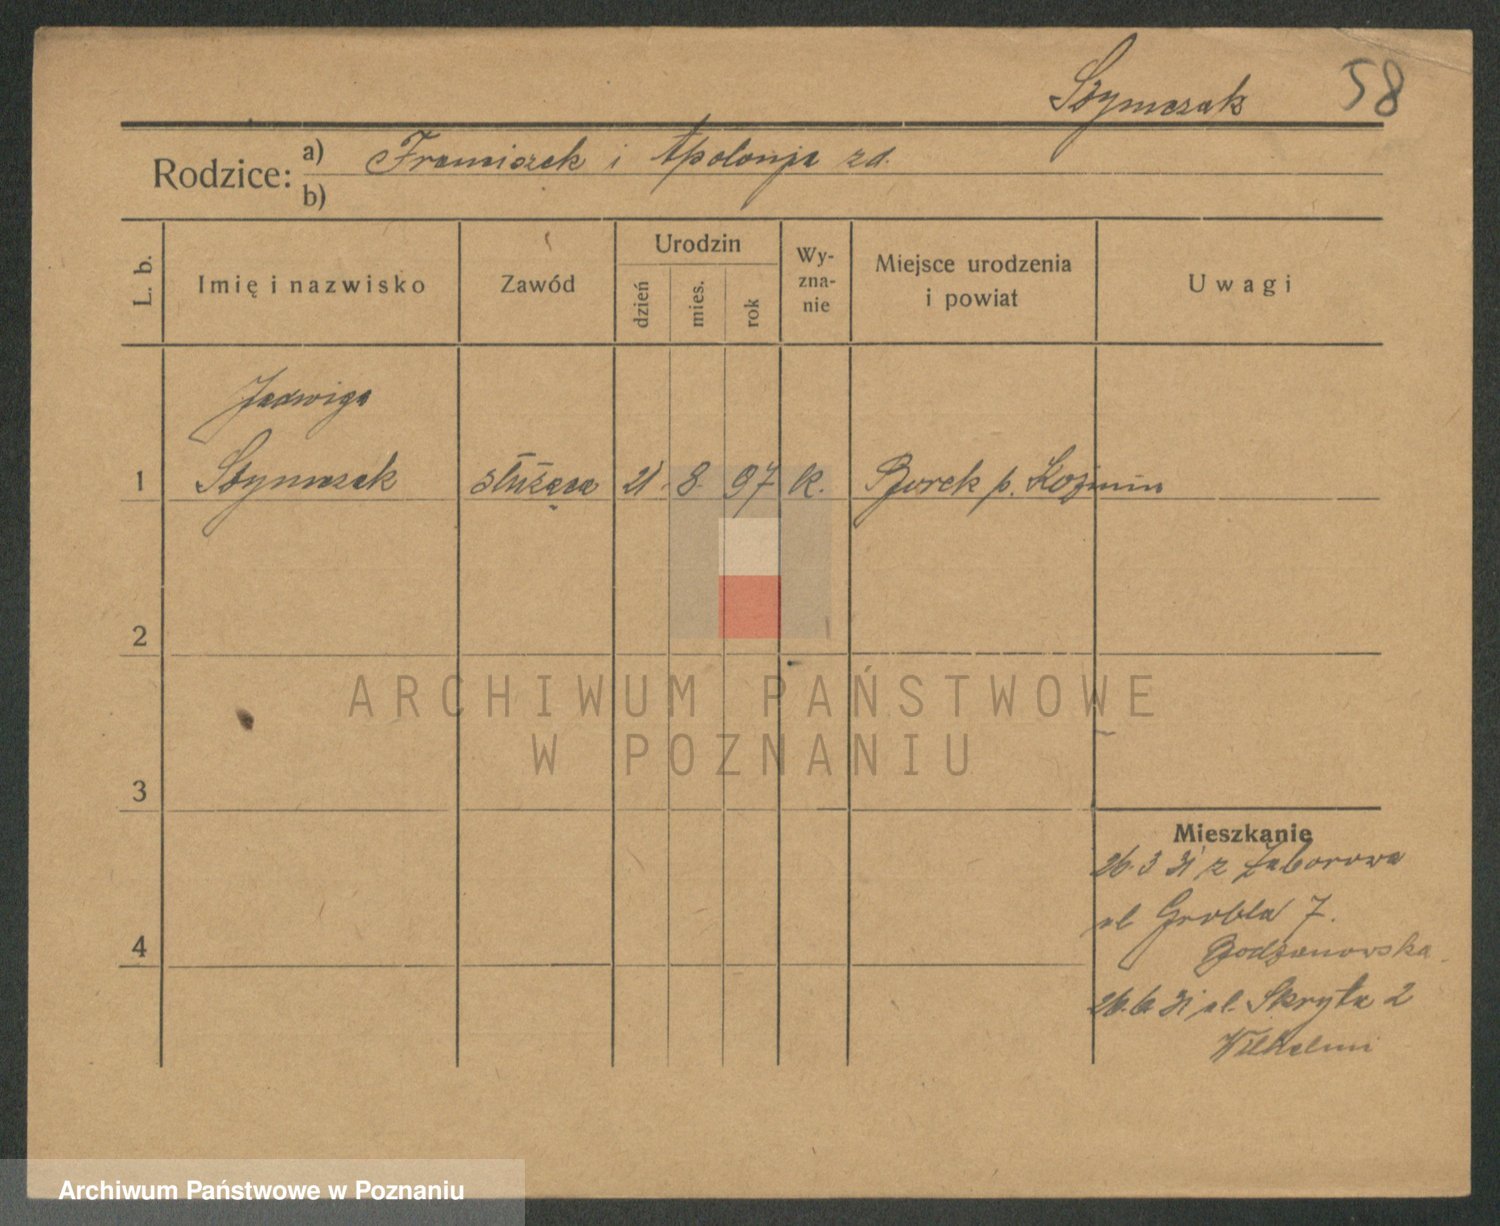 Szymczak 58
Rodzice: a) Franciszek i Apolonja zd.
b)
L. b. Imię i nazwisko Zawód Urodzin dzień mies. rok Wy-zna-nie Miejsce urodzenia i powiat Uwagi
Jadwiga
1 Szymczak służąca 21. 8. 97 k. Borek p. Koźmin
2
ARCHIWUM PAŃSTWOWE
W POZNANIU
3
Mieszkanie
26.3 31 z Zaborowa
ul Grobla 7.
4 Bodzanowska
26.6 31 ul. Skryta 2
Wilhelmi
Archiwum Państwowe w Poznaniu